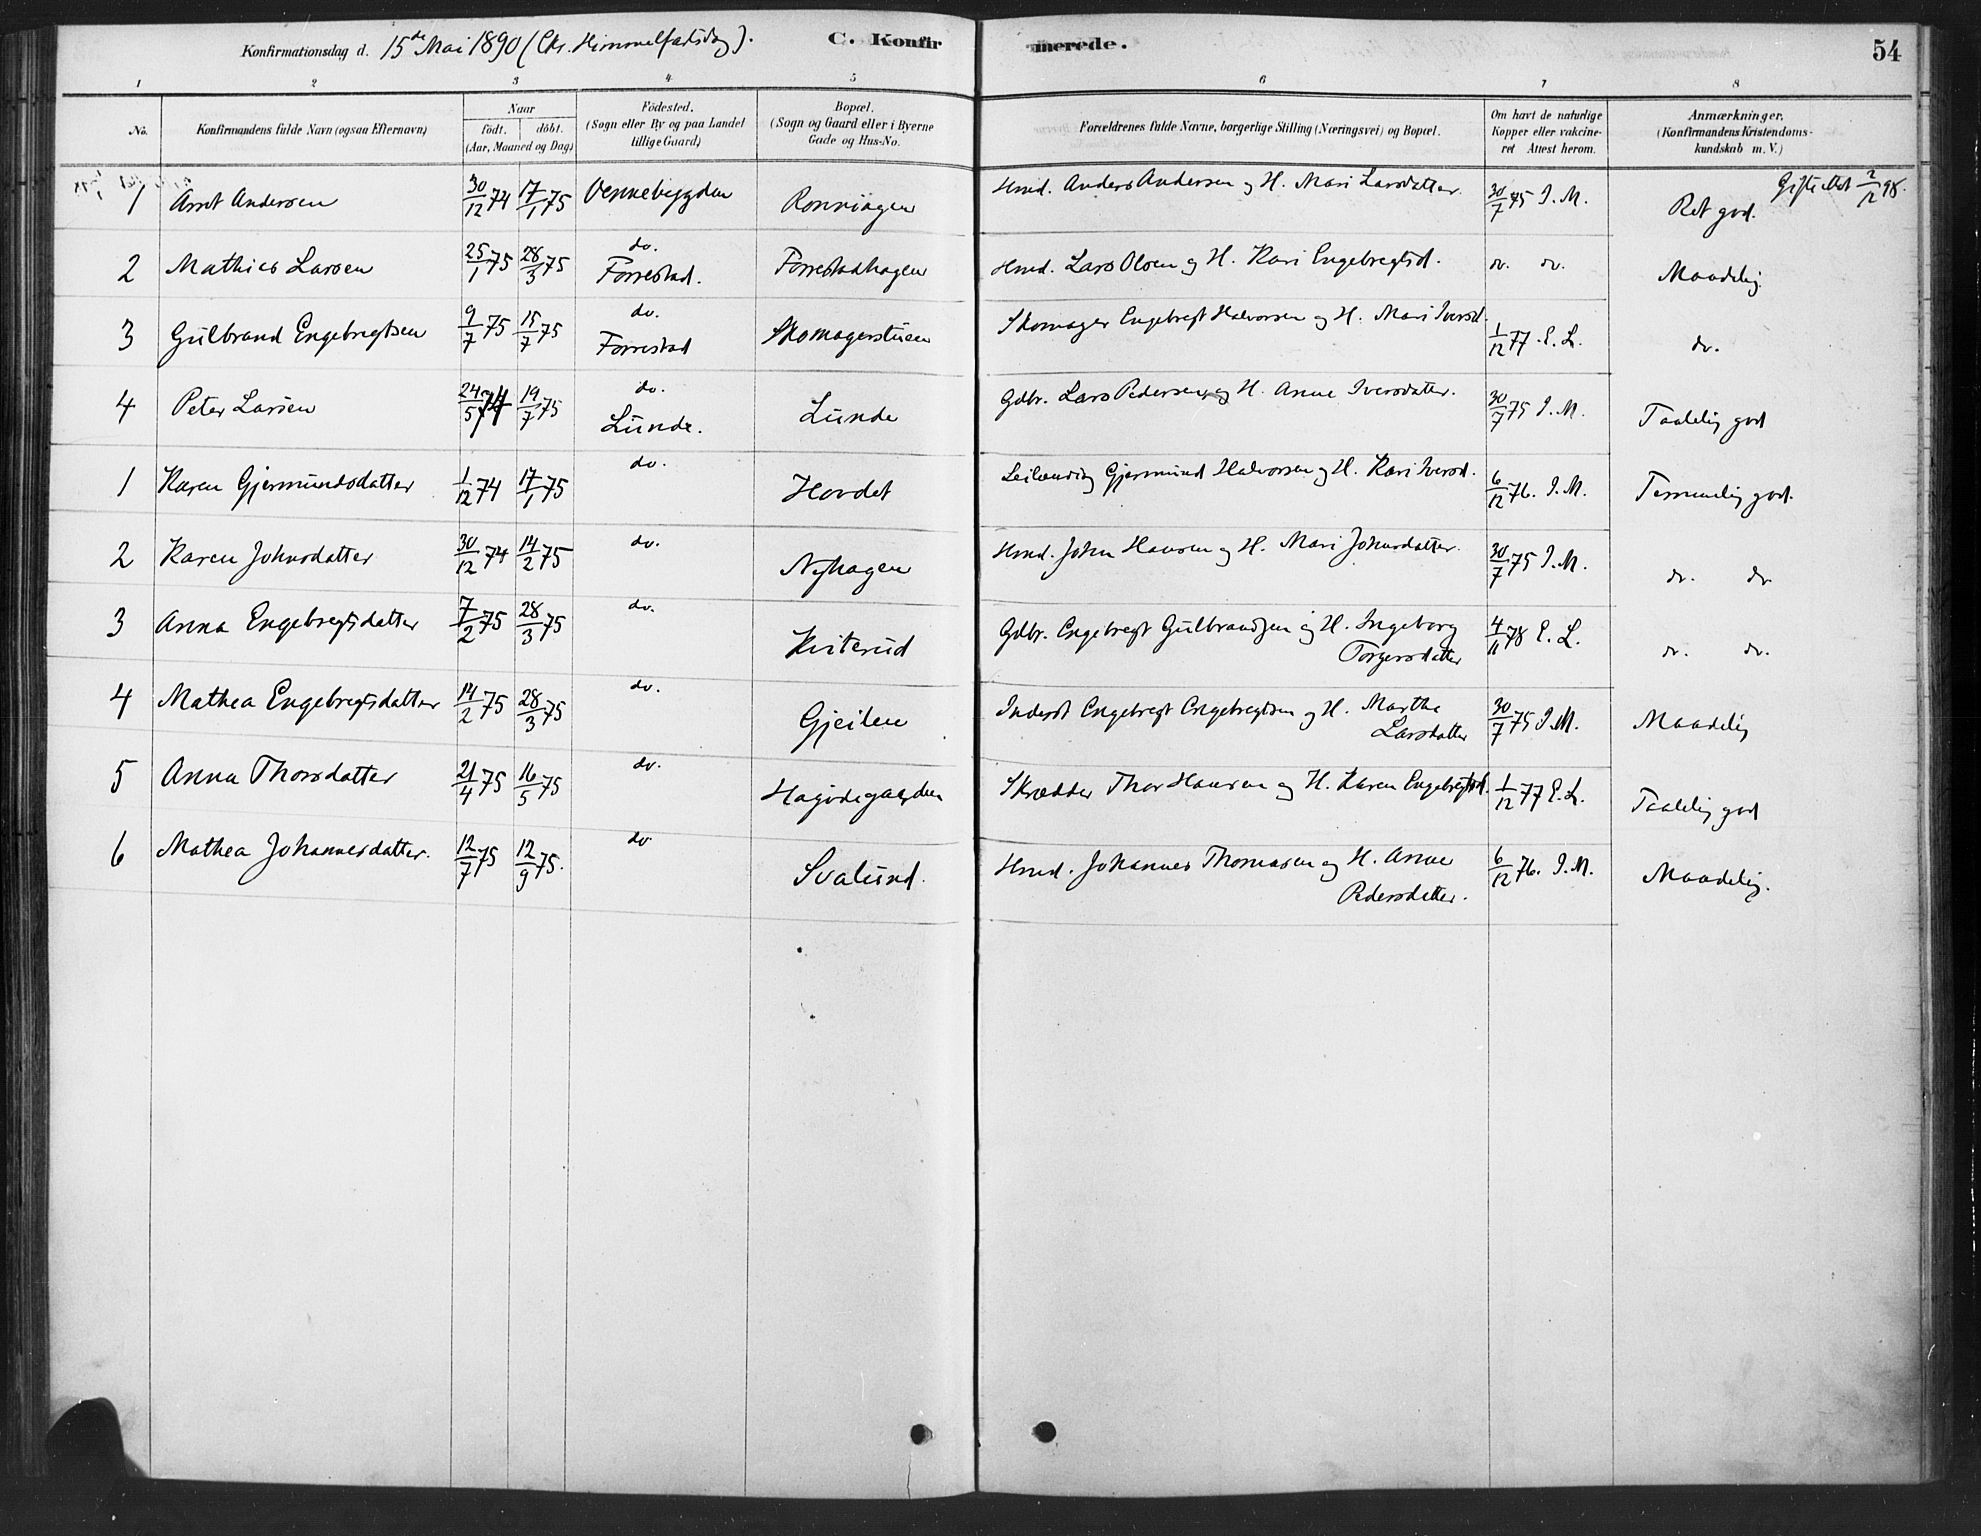 Konfirmationsdag d. 15de Mai 1890 (Chr. Himmelfartsdag). C. Konfirmerede. 54
1 2 3 4 5 6 7 8
No. Konfirmandens fulde Navn (ogsaa Efternavn) Naar födt. döbt. (Aar, Maaned og Dag) Födested. (Sogn eller By og paa Landet tillige Gaard) Bopæl. (Sogn og Gaard eller i Byerne Gade og Hus-No. Forældrenes fulde Navne, borgerlige Stilling (Næringsvei) og Bopæl. Om havt de naturlige Kopper eller vakcineret Attest herom. Anmærkninger, (Konfirmandens Kristendomskundskab m. V.)
1 Arnt Andersen 30/12 74 17/1 75 Vennebygden Rønningen Hmd. Anders Andersen og H. Mari Larsdatter. 30/7 45 I. M. Ret god. Gifte Att 2/12 98.
2 Mathias Larsen 25/1 75 28/3 75 do. Forrestad. Forrestadhagen Hmd. Lars Olsen og H. Kari Engebregtsd. do. do. Maadelig.
3 Gulbrand Engebregtsen 9/7 75 15/7 75 do. Forrestad Skomagerstuen Skomager Engebregt Halvorsen og H. Mari Iversd. 1/12 77. E. L. do.
4 Peter Larsen 24/5 74 19/7 75 do. Lunde. Lunde Gdbr. Lars Pedersen og H. Anne Iversdatter. 30/7 75 I. M. Taalelig god
1 Karen Gjermundsdatter 1/12 74 17/1 75 do. Hovdet Leilending Gjermund Halvorsen og H. Kari Iversd. 6/12 76. I. M. Temmelig god.
2 Karen Johnsdatter 30/12 74 14/2 75 do. Nyhagen Hmd. John Hansen og H. Mari Johnsdatter. 30/7 75 I. M. do. do
3 Anna Engebregtsdatter 7/2 75 28/3 75 do. Kviterud Gdbr. Engebregt Gulbrandsen og H. Ingeborg Torgersdatter 4/11 78 E. L. do. do.
4 Mathea Engebregtsdatter 14/2 75 28/3 75 do. Gjeilen Inderst Engebregt Engebregtsen og H. Marthe Larsdatter 30/7 75 I. M. Maadelig
5 Anna Thorsdatter 21/4 75 16/5 75 do. Skrædder Thor Hansen og H. Karen Engebregtsd. 1/12 77 E. L. Taalelig god
6 Mathea Johannesdatter. 12/7 75 12/9 75. do Svalund. Hmd. Johannes Thomasen og H. Anne Pedersdatter. 6/12 76. I. M. Maadelig.